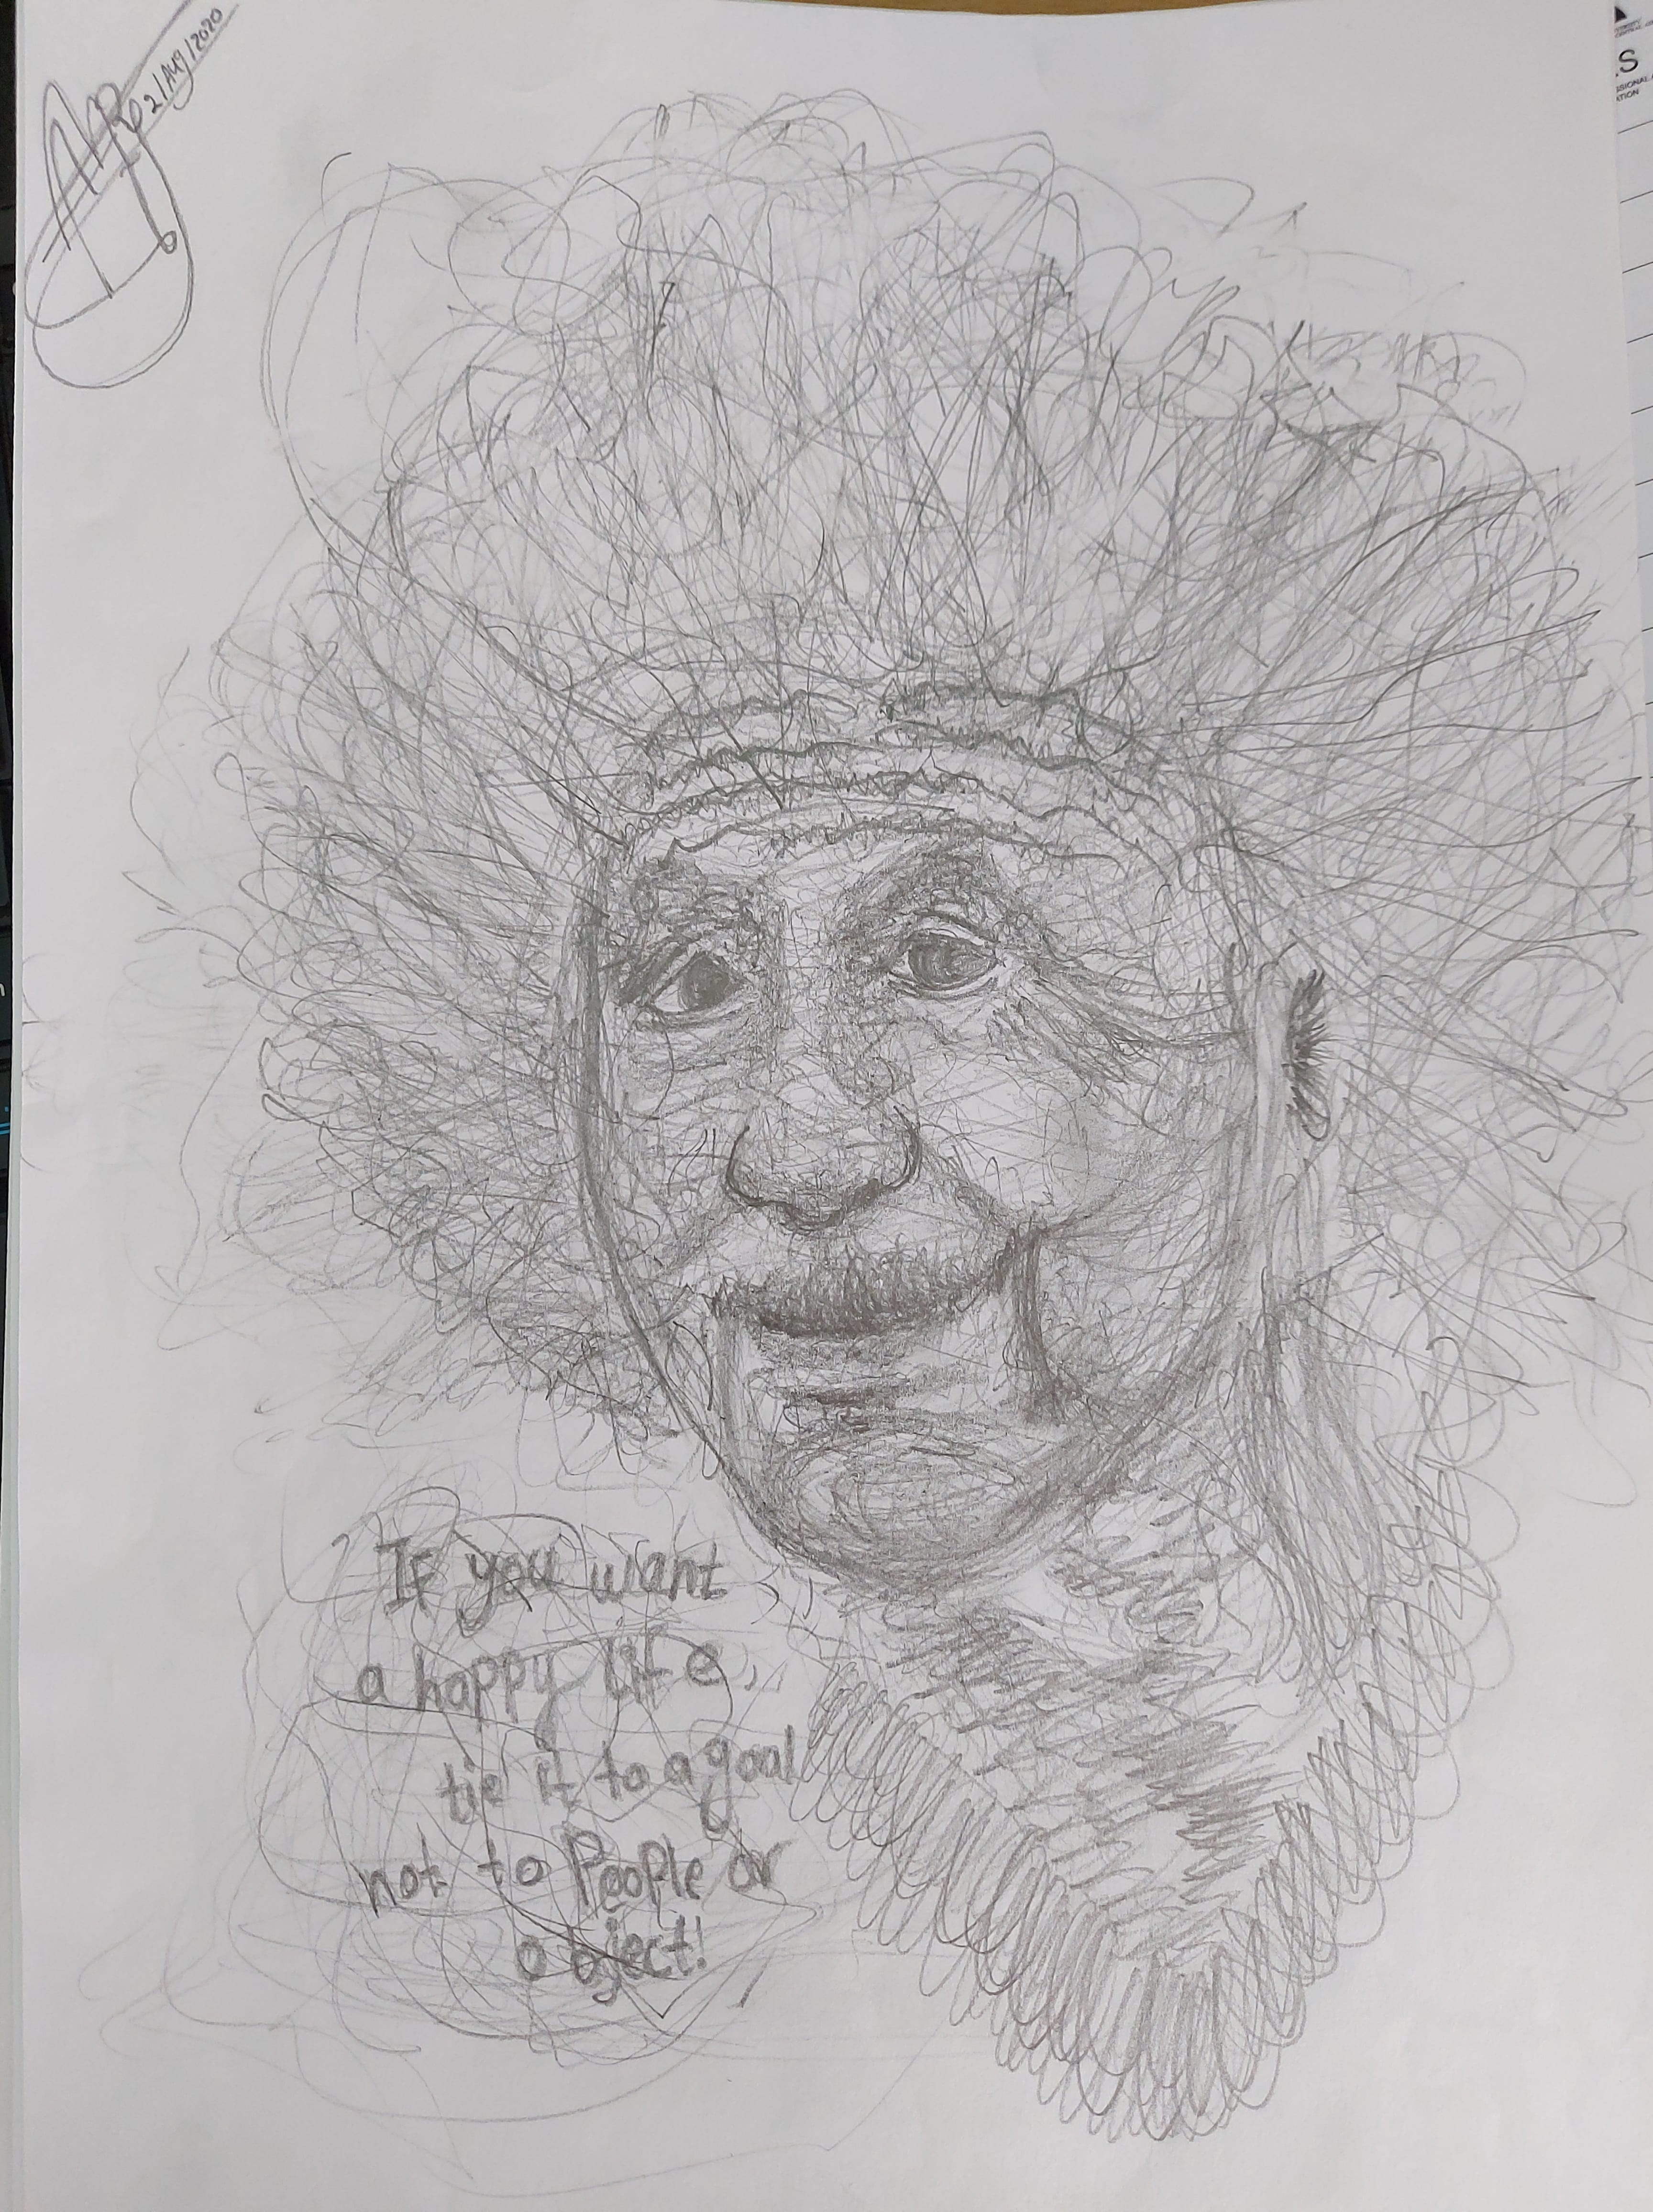 21/Aug/2020
.S
If you want
a happy life,
tie it to a goal
not to People or
object!